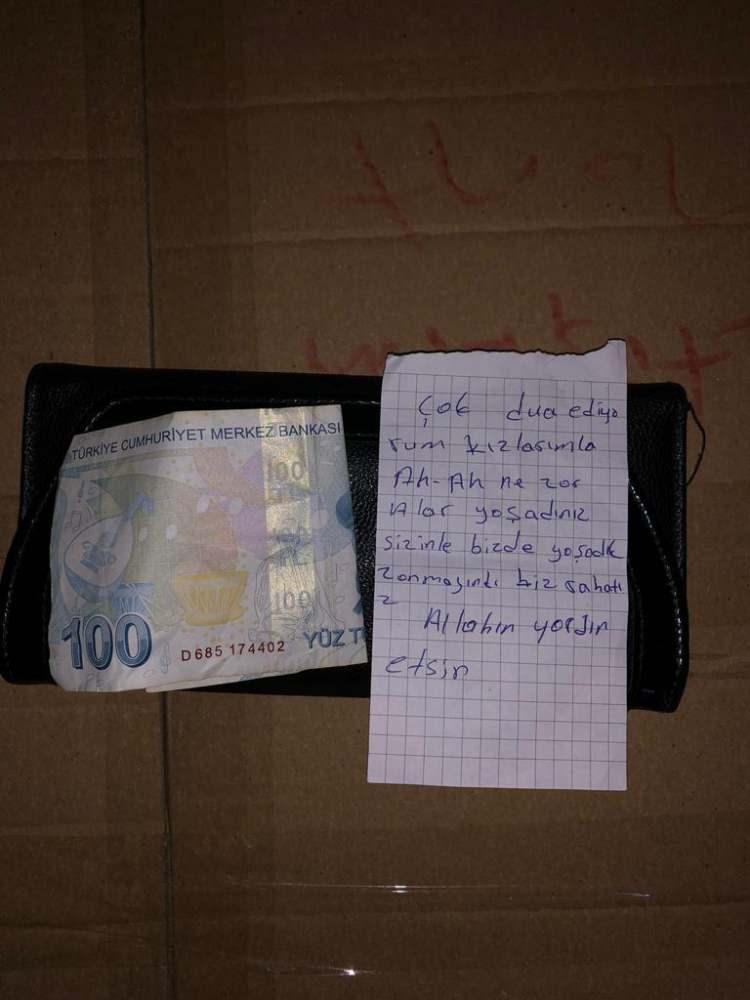 TÜRKİYE CUMHURİYET MERKEZ BANKASI
100
100
100
100
D685 174402
YÜZ T
Çok dua ediyo
rum kızlarımla
Ah-Ah ne zor
yoşadınız
sizinle bizde yoşadık
biz
z
Allahın yordın
etsin